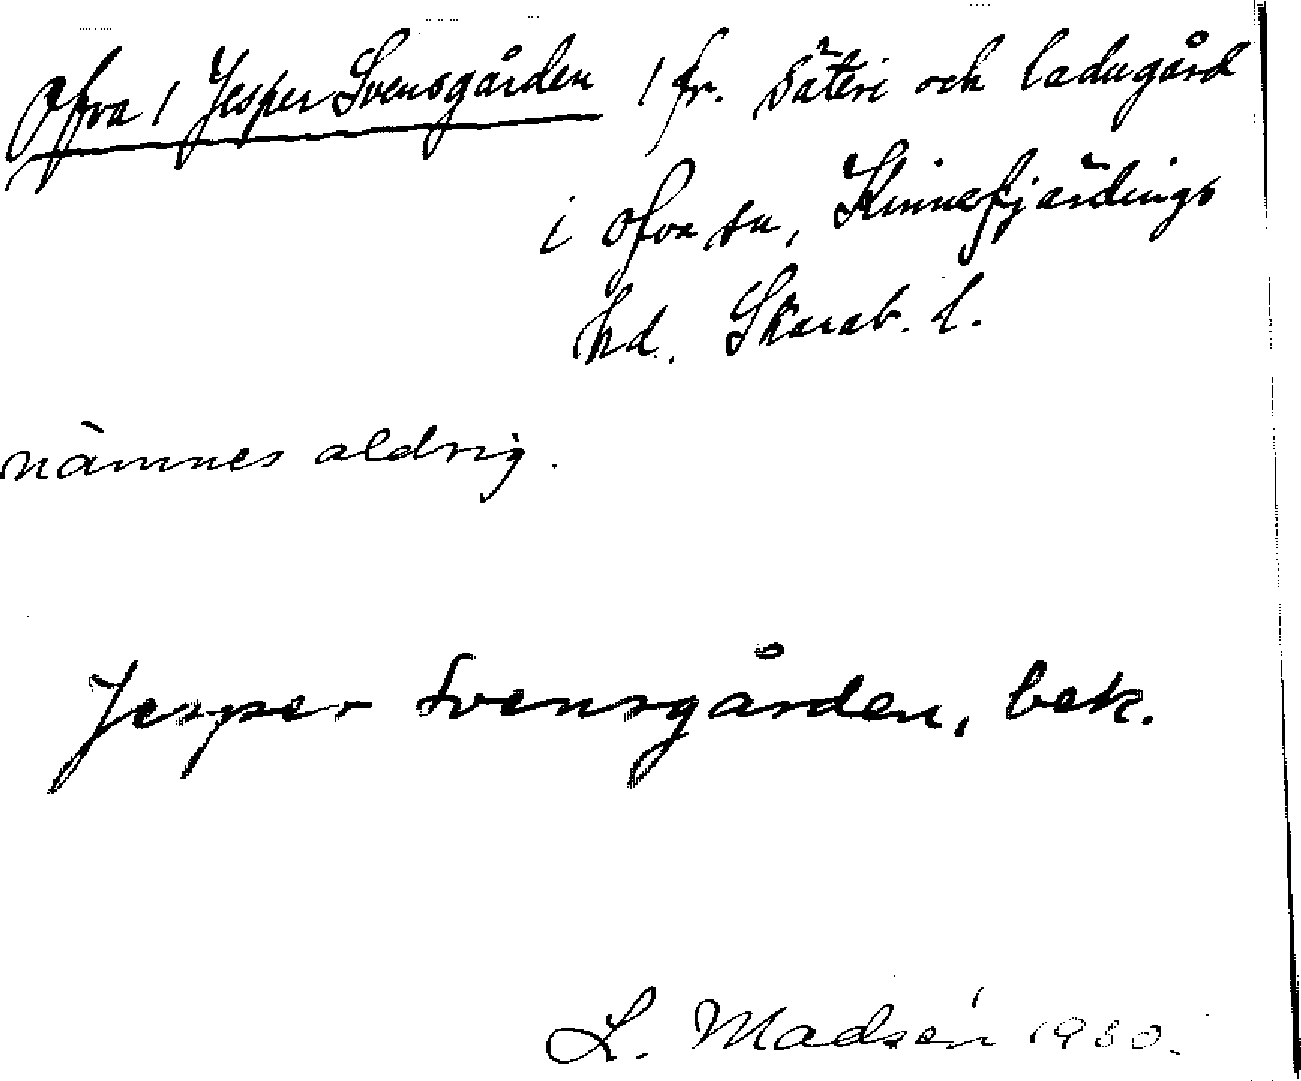 Ofva 1 Jesper Svensgården 1 fr. säteri och ladugård
i Ofva sn, Kinnefjärdings
hd. Skarab. l.
nämnes aldrig.
Jesper Svensgården, bek.
L. Madsén 1930.